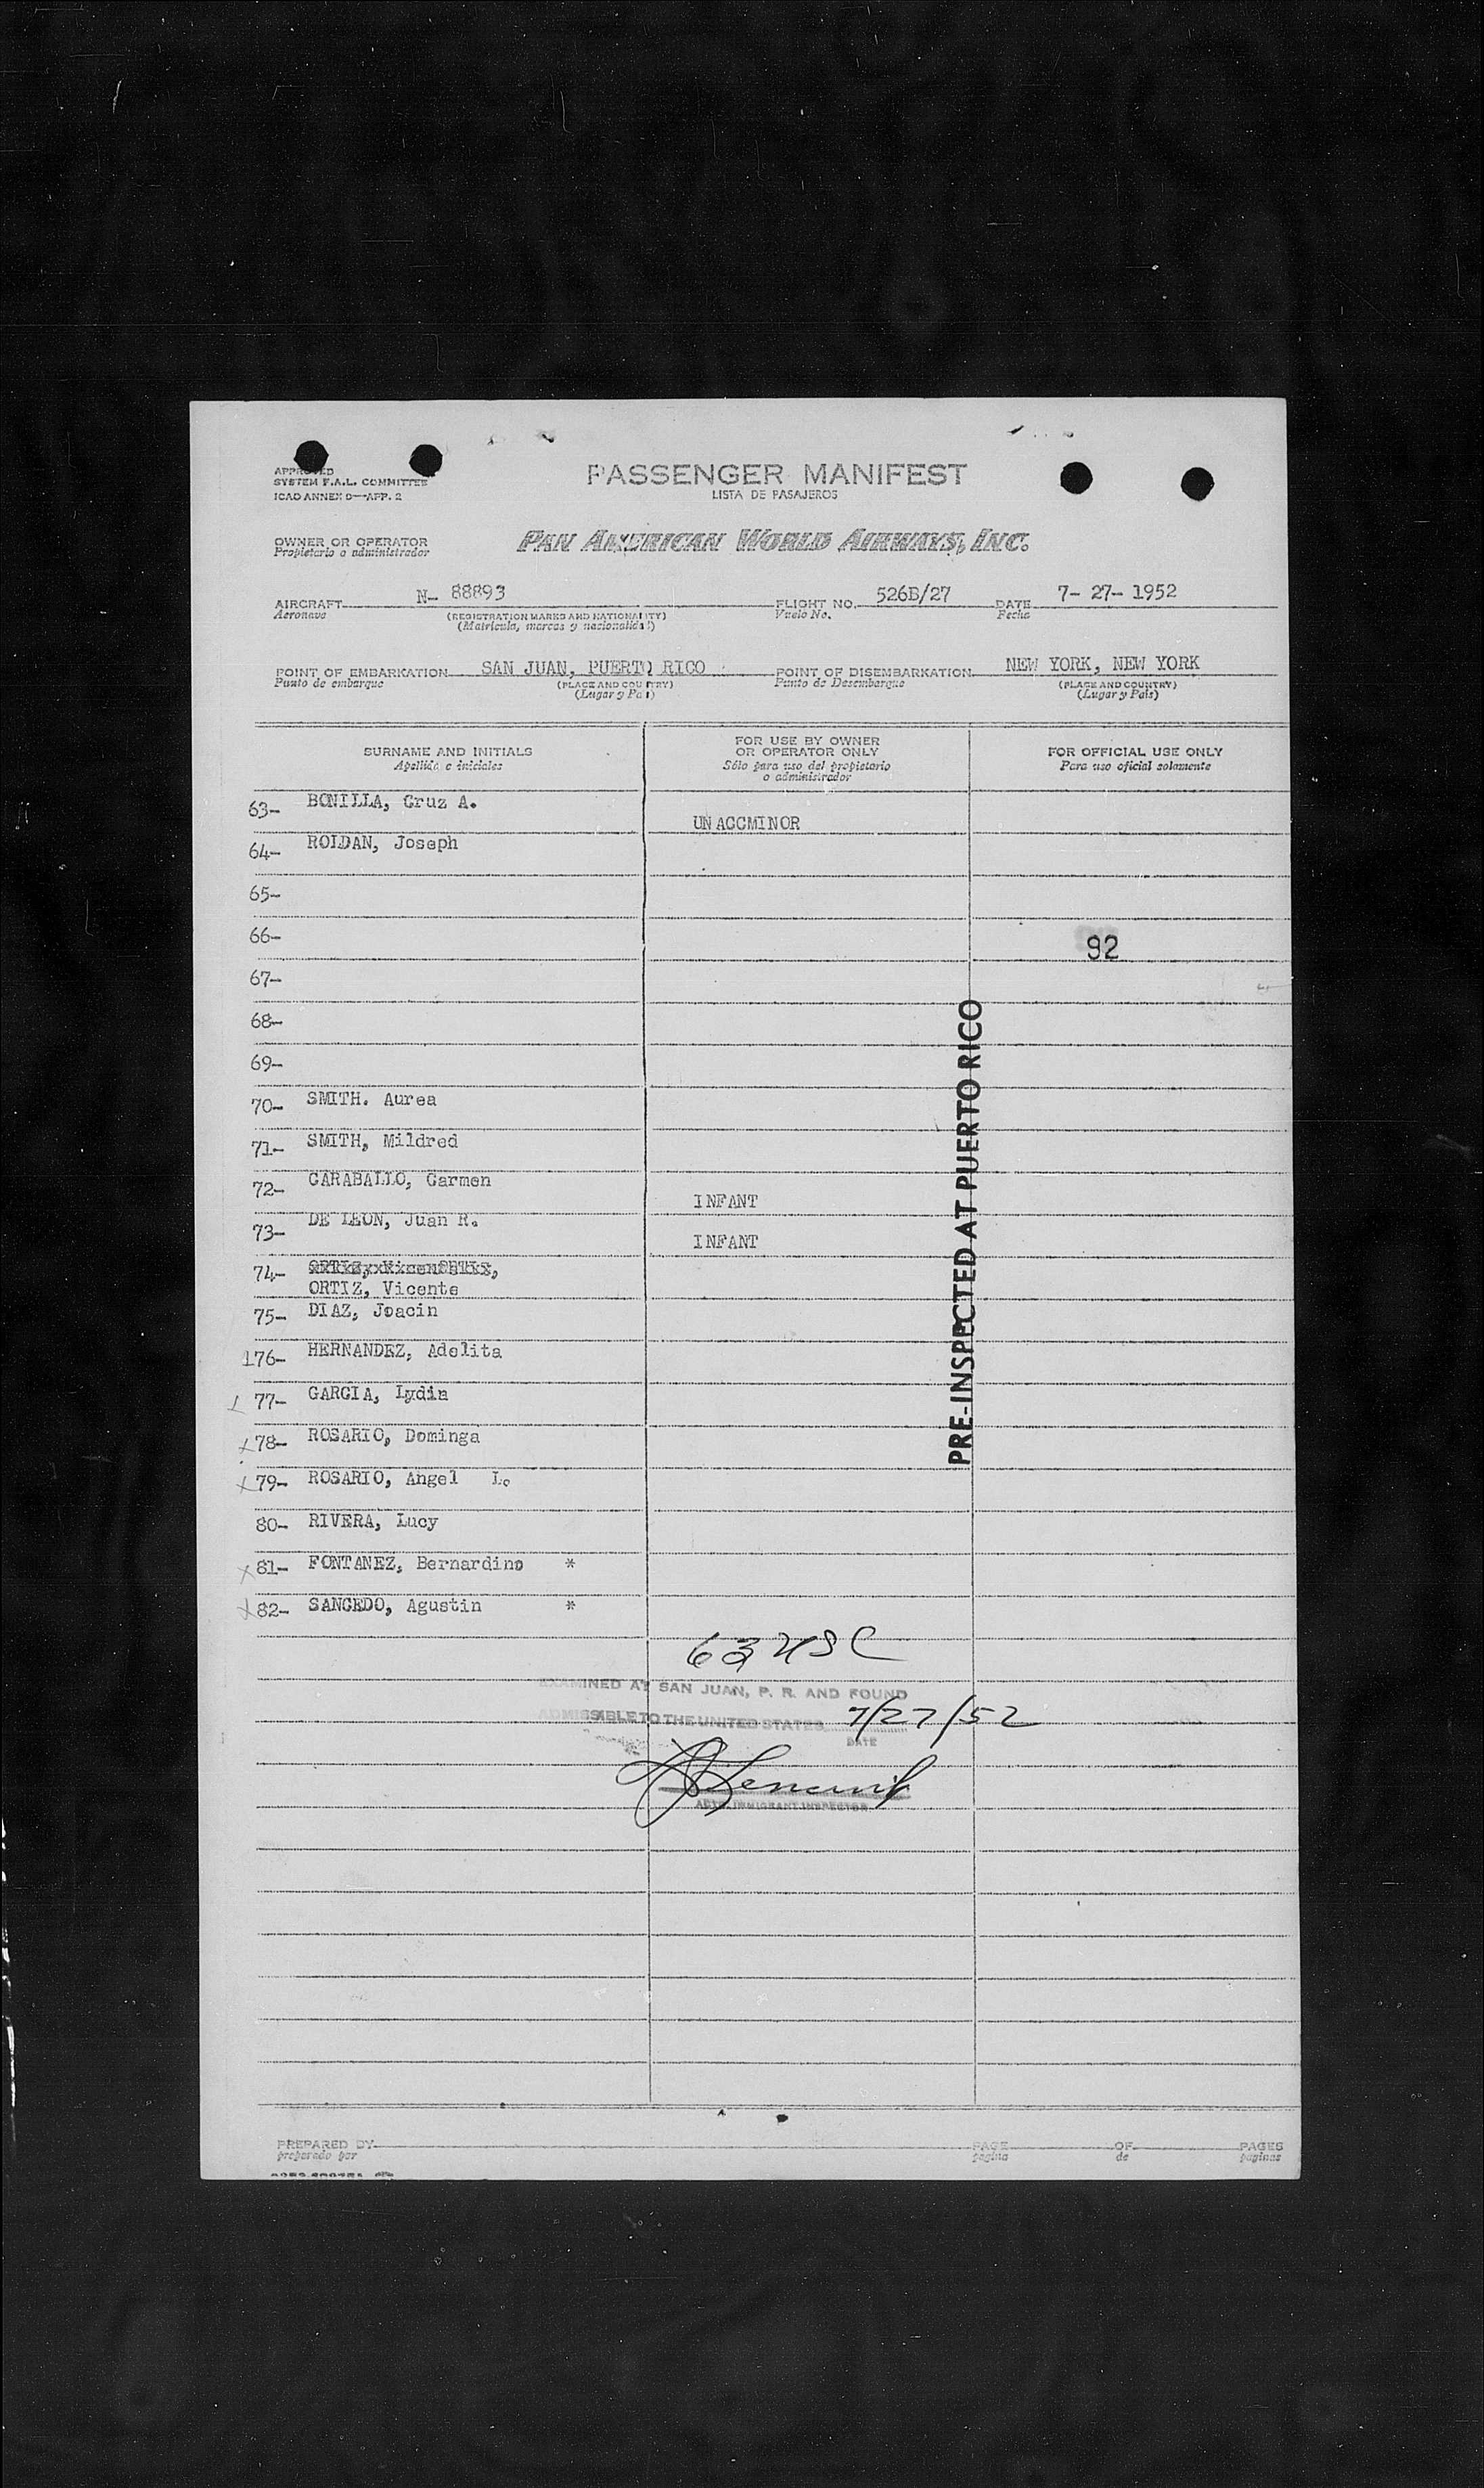 APPROVED
SYSTEM F.A.L. COMMITTEE
ICAO ANNEX 9—APP. 2
PASSENGER MANIFEST
LISTA DE PASAJEROS
OWNER OR OPERATOR
Propietario o administrador
PAN AMERICAN WORLD AIRWAYS, INC.
AIRCRAFT N- 88893 FLIGHT NO. 526B/27 DATE 7- 27- 1952
Aeronave (REGISTRATION MARKS AND NATIONALITY) Vuelo No. Fecha
(Matrícula, marcas y nacionalidad)
POINT OF EMBARKATION SAN JUAN, PUERTO RICO POINT OF DISEMBARKATION NEW YORK, NEW YORK
Punto de embarque (PLACE AND COUNTRY) Punto de Desembarque (PLACE AND COUNTRY)
(Lugar y País) (Lugar y País)
SURNAME AND INITIALS
Apellido e iniciales
FOR USE BY OWNER
OR OPERATOR ONLY
Sólo para uso del propietario
o administrador
FOR OFFICIAL USE ONLY
Para uso oficial solamente
63- BONILLA, Cruz A.
UNACCMINOR
64- ROLDAN, Joseph
65-
66-
92
67-
68-
69-
70- SMITH. Aurea
71- SMITH, Mildred
72- CARABALLO, Carmen
INFANT
73- DE LEON, Juan R.
INFANT
74-
ORTIZ, Vicente
75- DIAZ, Joacin
176- HERNANDEZ, Adelita
77- GARCIA, Lydia
x78- ROSARIO, Dominga
x79- ROSARIO, Angel L.
80- RIVERA, Lucy
x81- FONTANEZ, Bernardino *
x82- SANCEDO, Agustin *
PRE-INSPECTED AT PUERTO RICO
63 USC
EXAMINED AT SAN JUAN, P. R. AND FOUND
ADMISSIBLE TO THE UNITED STATES 7/27/52
DATE
IMMIGRANT INSPECTOR
PREPARED BY PAGE OF PAGES
preparado por página de páginas